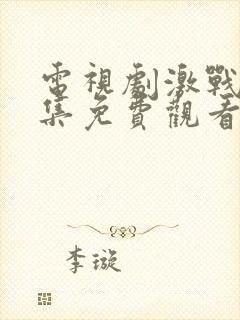 電視劇激戰
集免費觀看
李璇